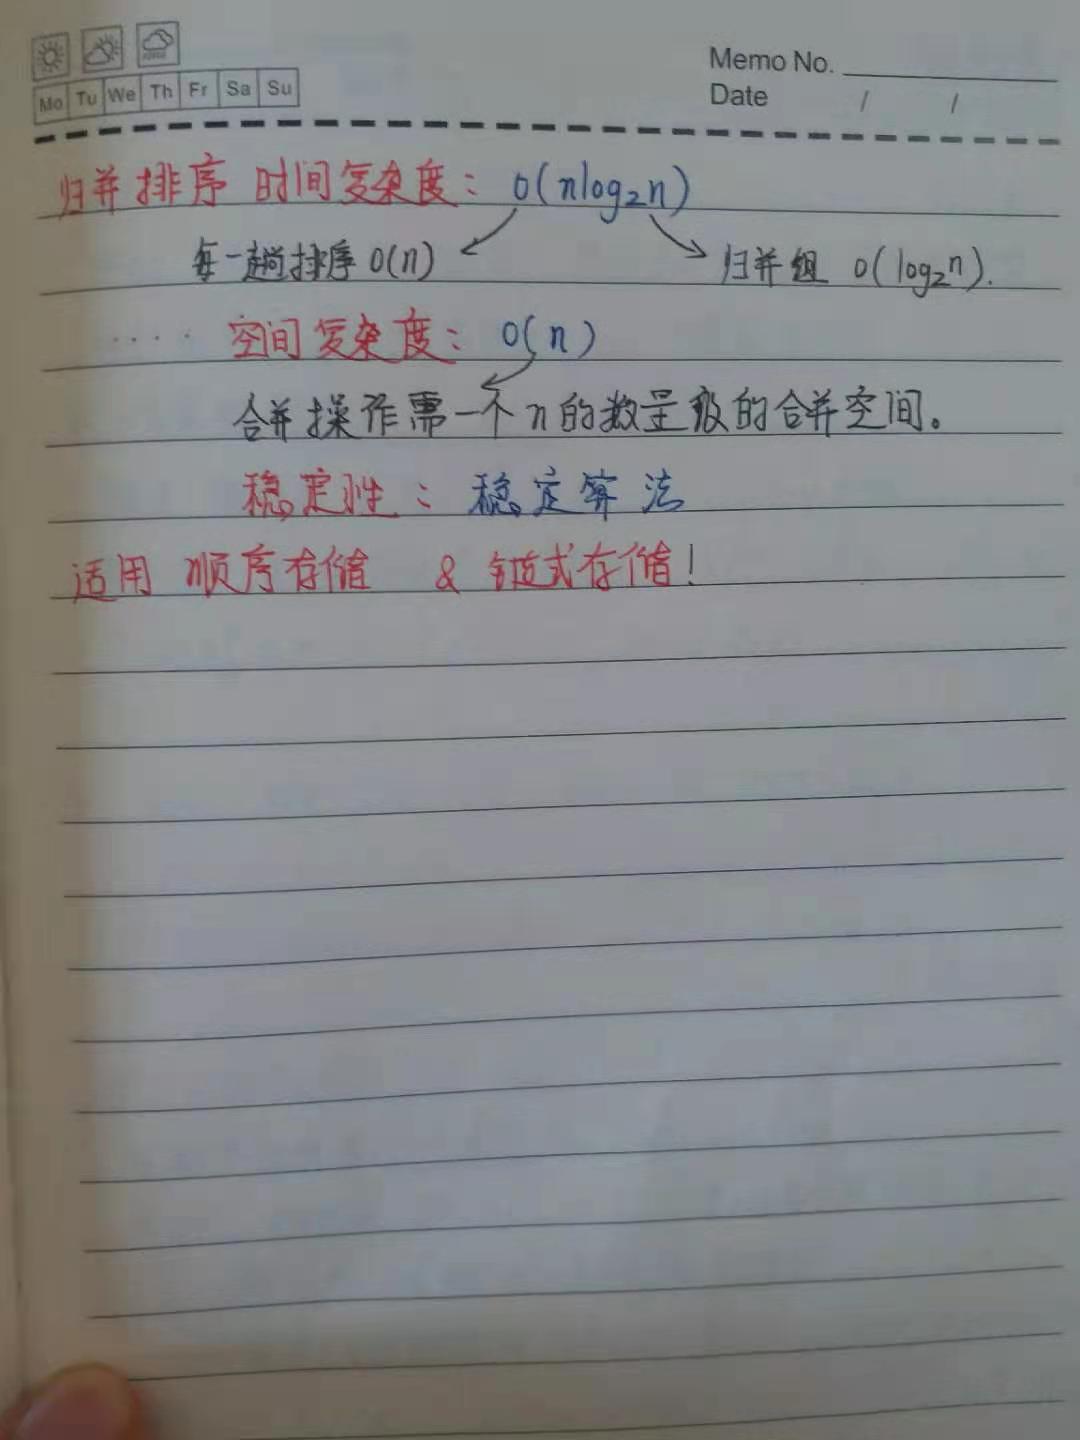 Memo No.
Mo Tu We Th Fr Sa Su
Date / /
归并排序 时间复杂度：O(nlog₂n)
每一趟排序 O(n) 归并组 O(log₂n).
···· 空间复杂度：O(n)
合并操作需一个n的数量级的合并空间。
稳定性：稳定算法
适用 顺序存储 & 链式存储！